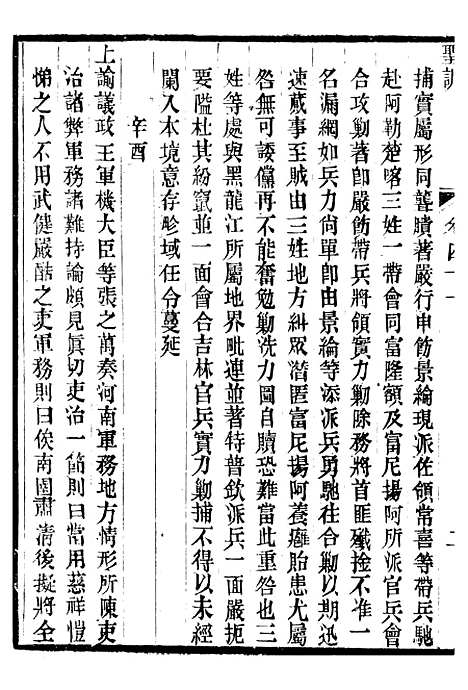 聖訓
捕實屬形同聾聵著嚴行申飭景綸現派佐領常喜等帶兵馳
赴阿勒楚喀三姓一帶會同富隆額及富尼揚阿所派官兵會
合攻勦著卽嚴飭帶兵將領實力勦除務將首匪殲捡不准一
名漏網如兵力尙單卽由景綸等添派兵勇馳往合勦以期迅
速蕆事至賊由三姓地方糾眾潛匿富尼揚阿養癰貽患尤屬
咎無可諉儻再不能奮勉勦洗力圖自贖恐難當此重咎也三
姓等處與黑龍江所屬地界毗連並著特普欽派兵一面嚴扼
要隘杜其紛竄並一面會合吉林官兵實力勦捕不得以未經
闌入本境意存畛域任令蔓延
辛酉
上諭議政王軍機大臣等張之萬奏河南軍務地方情形所陳吏
治諸弊軍務諸難持論頗見眞切吏治一節則曰當用慈祥愷
悌之人不用武健嚴酷之吏軍務則曰俟南圍肅淸後擬將全